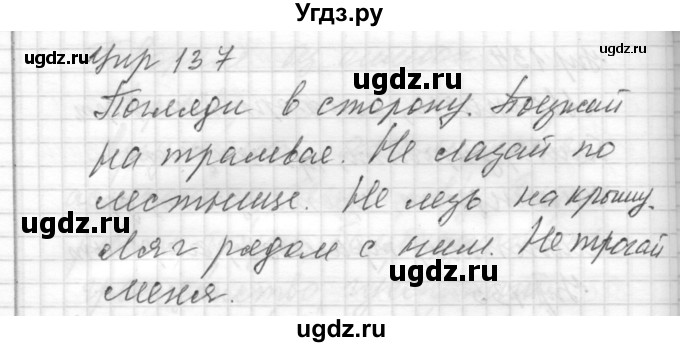 Угдз.ру
Упр 137
ugdz.ru ugdz.ru
Погляди в сторону. Поезжай
на трамвае. Не лазай по
лестнице. Не лезь на крышу.
ugdz.ru ugdz.ru
Ляг рядом с ним. Не трогай
меня.
ugdz.ru
ugdz.ru